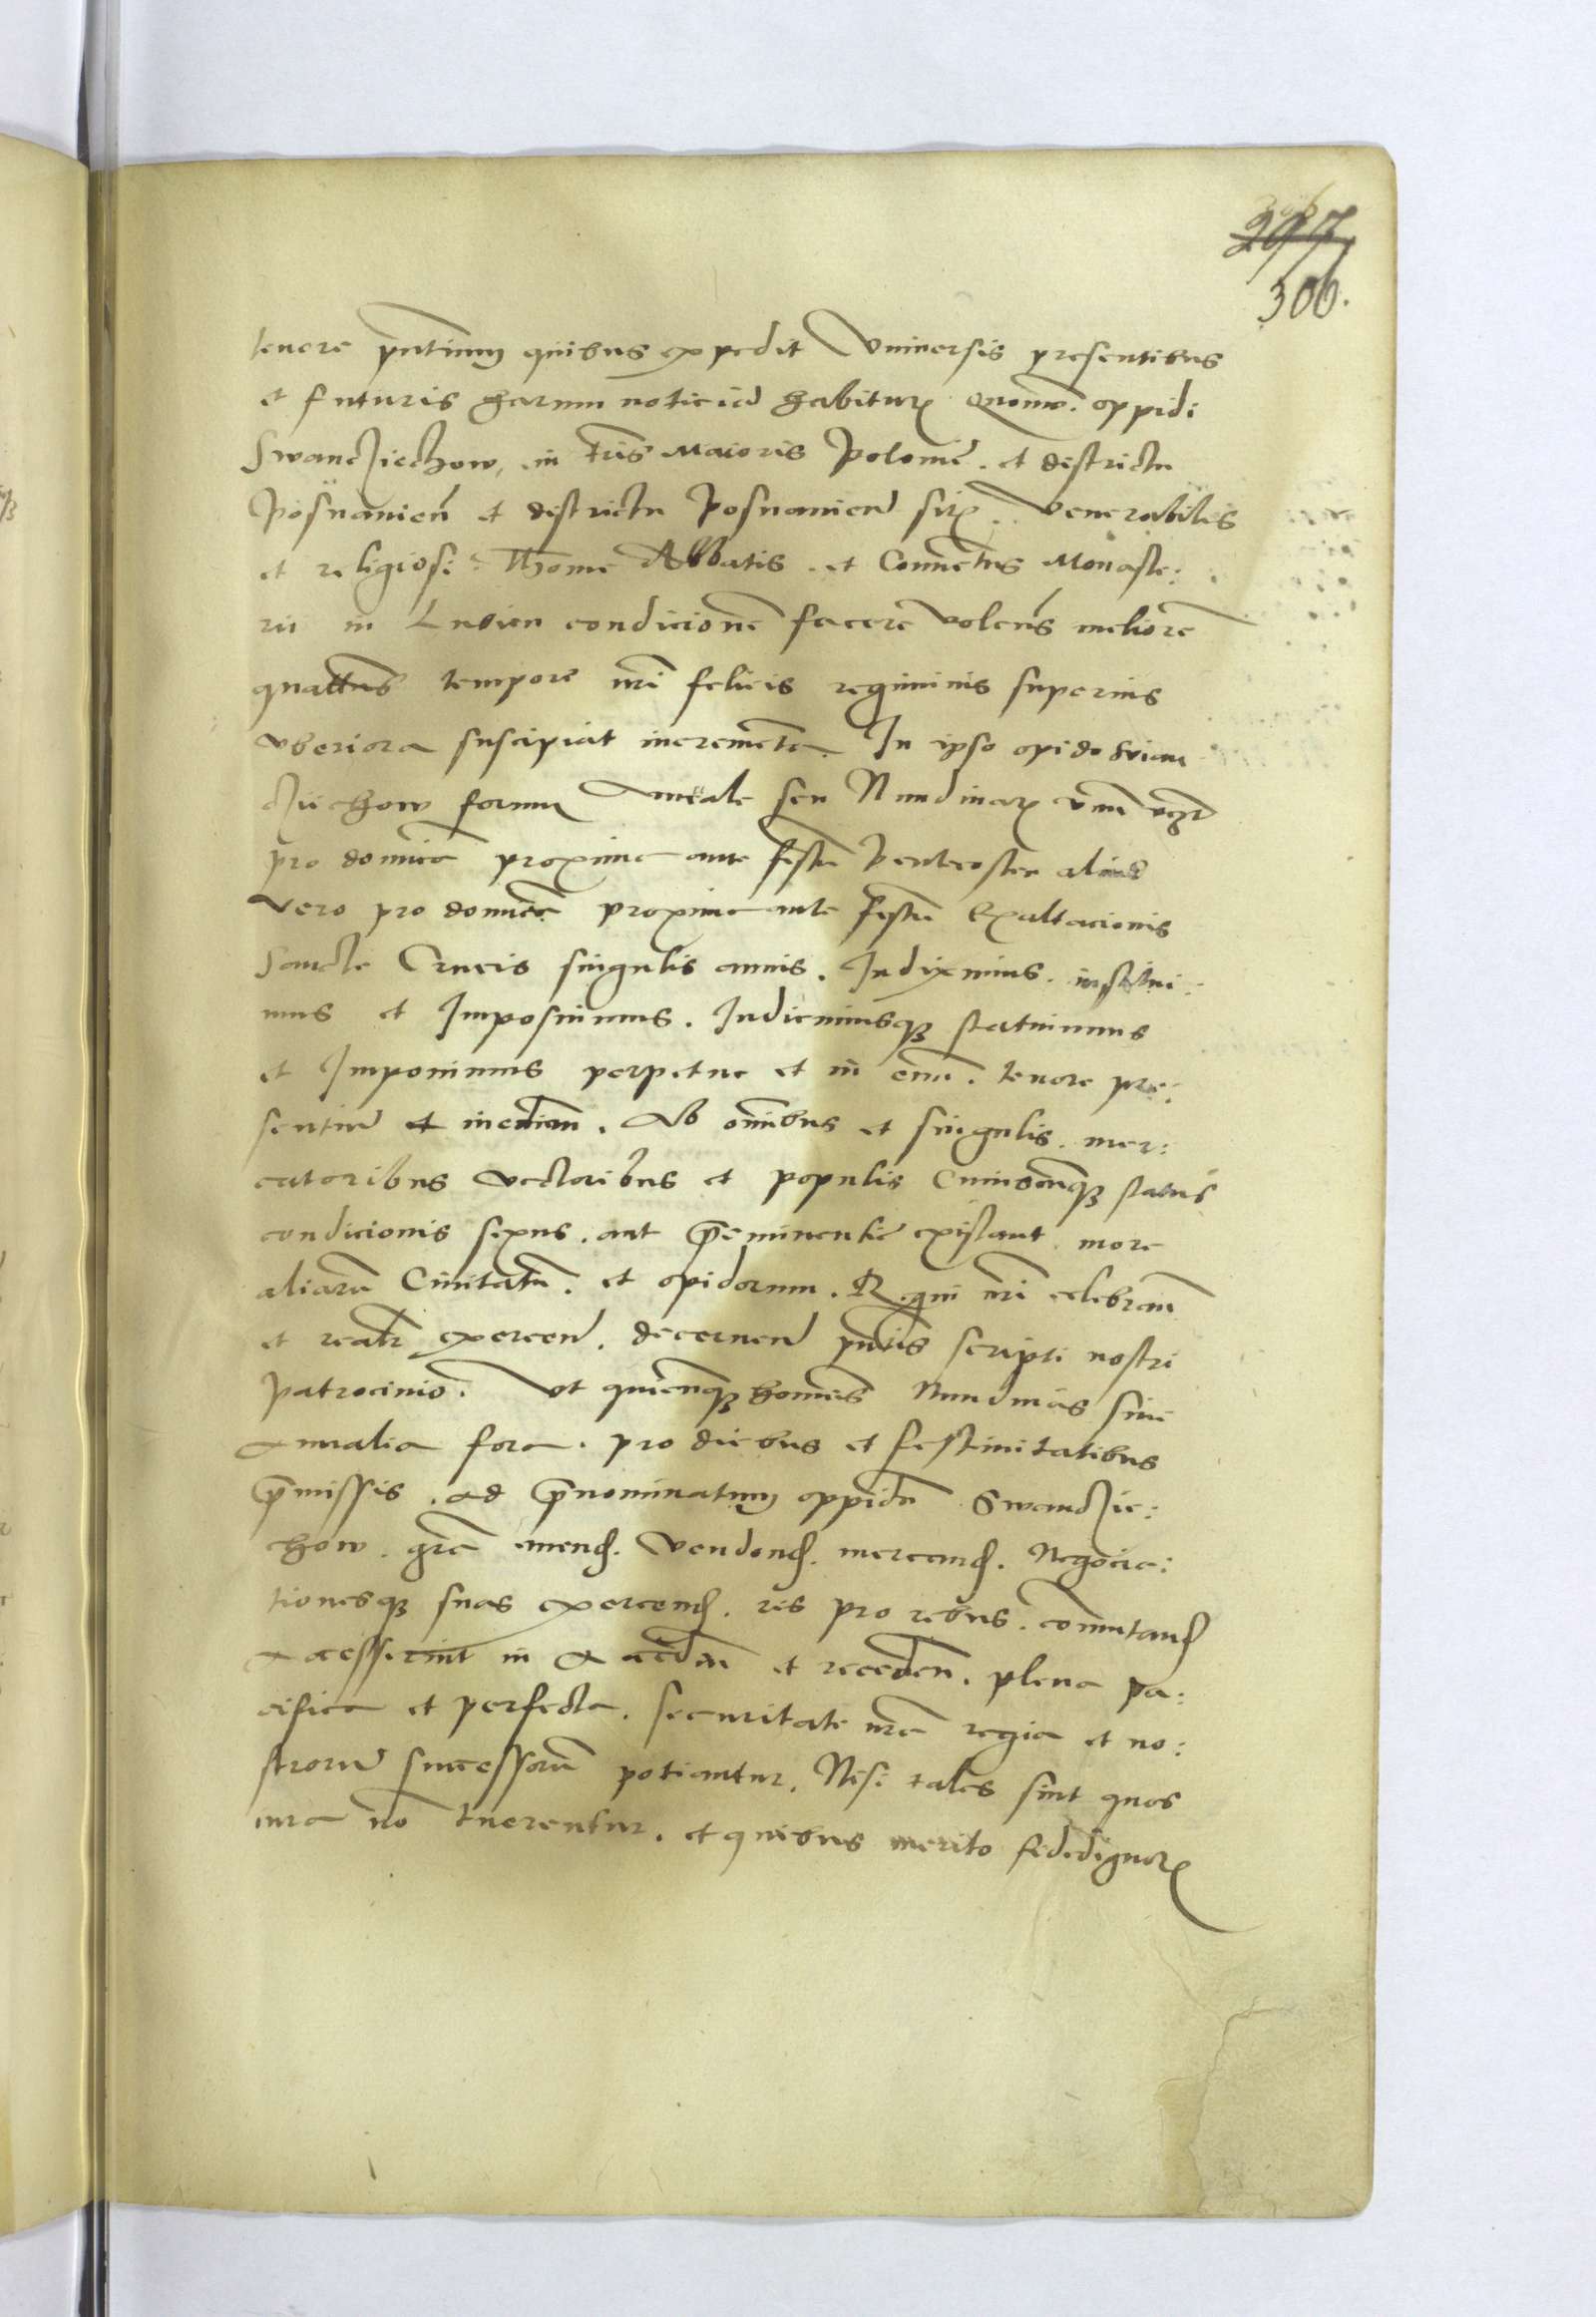 297
306.
tenore pñtium quibus expedit Universis presentibus
et futuris harum noticiã habituꝝ Quomõ. oppidi
Swancziechow, in tris Maioris Poloniẽ. et districtu
Posnanieñ et districtu Posnanieñ sitꝝ. Venerabilis
et religiosi Thome Abbatis. et Conuẽtus Monaste:
rii in Lubien condicionẽ facere volens meliorẽ
quattus tempore nri felicis regiminis superius
vberiora suscipiat incremẽta. In ipso opido Svian
cziechow forum Anũale seu Nundinaꝝ vnũ vcꝫ
pro dominica proxime ante festũ Pentecosten aliud
vero pro dominica proxime ante festũ Exaltacionis
Sancte Crucis singulis annis. Indiximus. institui:
mus et Imposuimus. Indicimusqꝫ statuimus
et Imponimus perpetue et in euũ. tenore pre:
sentiũ et mediañ. Ab omibus et singulis. mer:
catoribus vectoribus et populis Cuiuscũqꝫ status
condicionis sexus. aut p̃eminentie existant. more
aliarũ Ciuitatũ. et opidorum. Regni nri celebrañ
et realr exerceñ. decerneñ pñtis scripti nostri
patrocinio. Vt quicũqꝫ homies Nundinas siue
Annalia fora. pro diebus et festiuitatibus
p̃missis. ad p̃nominatum oppidũ Swanczie:
chow. grã emenđ. vendenđ. mercanđ. Negocia:
tionesqꝫ suas exercenđ. res pro rebus. commutanđ
Accesserint in Acceden et receden. plena pa:
cifica et perfecta. securitate nrã regia et no:
strorũ successorũ potiantur. Nisi tales sint quos
iura nõ tuerentur. et quibus merito fidedignoꝝ